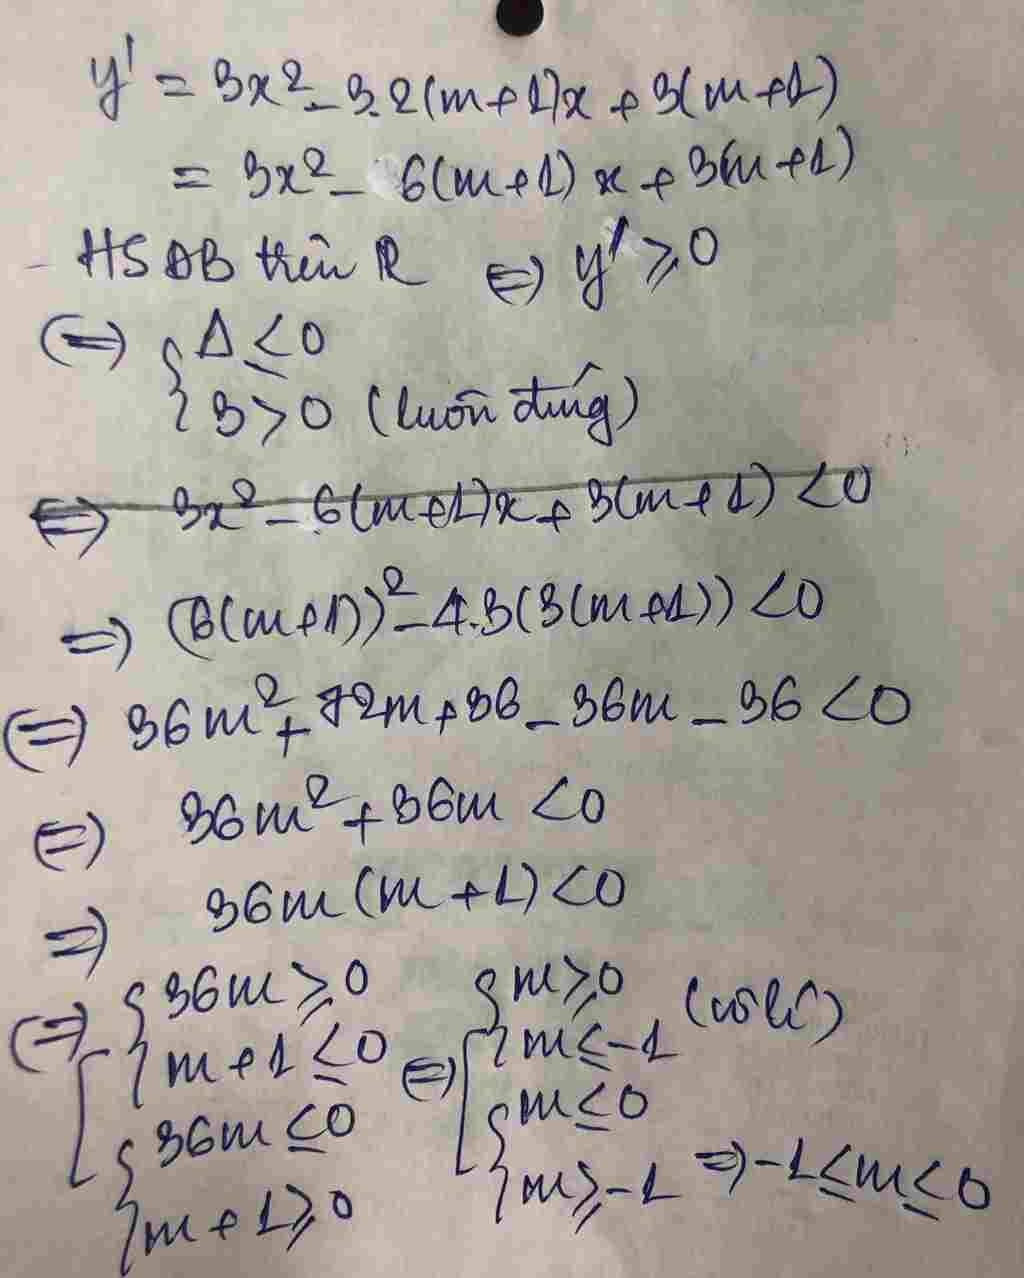 y' = 3x² - 3.2(m+1)x + 3(m+1)
= 3x² - 6(m+1)x + 3(m+1)
- HSĐB trên R ⇔ y' ≥ 0
⇔ { Δ ≤ 0
{ 3 > 0 (luôn đúng)
⇔ 3x² - 6(m+1)x + 3(m+1) < 0
⇒ (6(m+1))² - 4.3(3(m+1)) < 0
⇔ 36m² + 72m + 36 - 36m - 36 < 0
⇔ 36m² + 36m < 0
⇒ 36m(m+1) < 0
⇔ [ { 36m ≥ 0 [ { m ≥ 0 (vô lí)
{ m + 1 ≤ 0 ⇔ { m ≤ -1
{ 36m ≤ 0 { m ≤ 0
{ m + 1 ≥ 0 { m ≥ -1 ⇒ -1 ≤ m ≤ 0